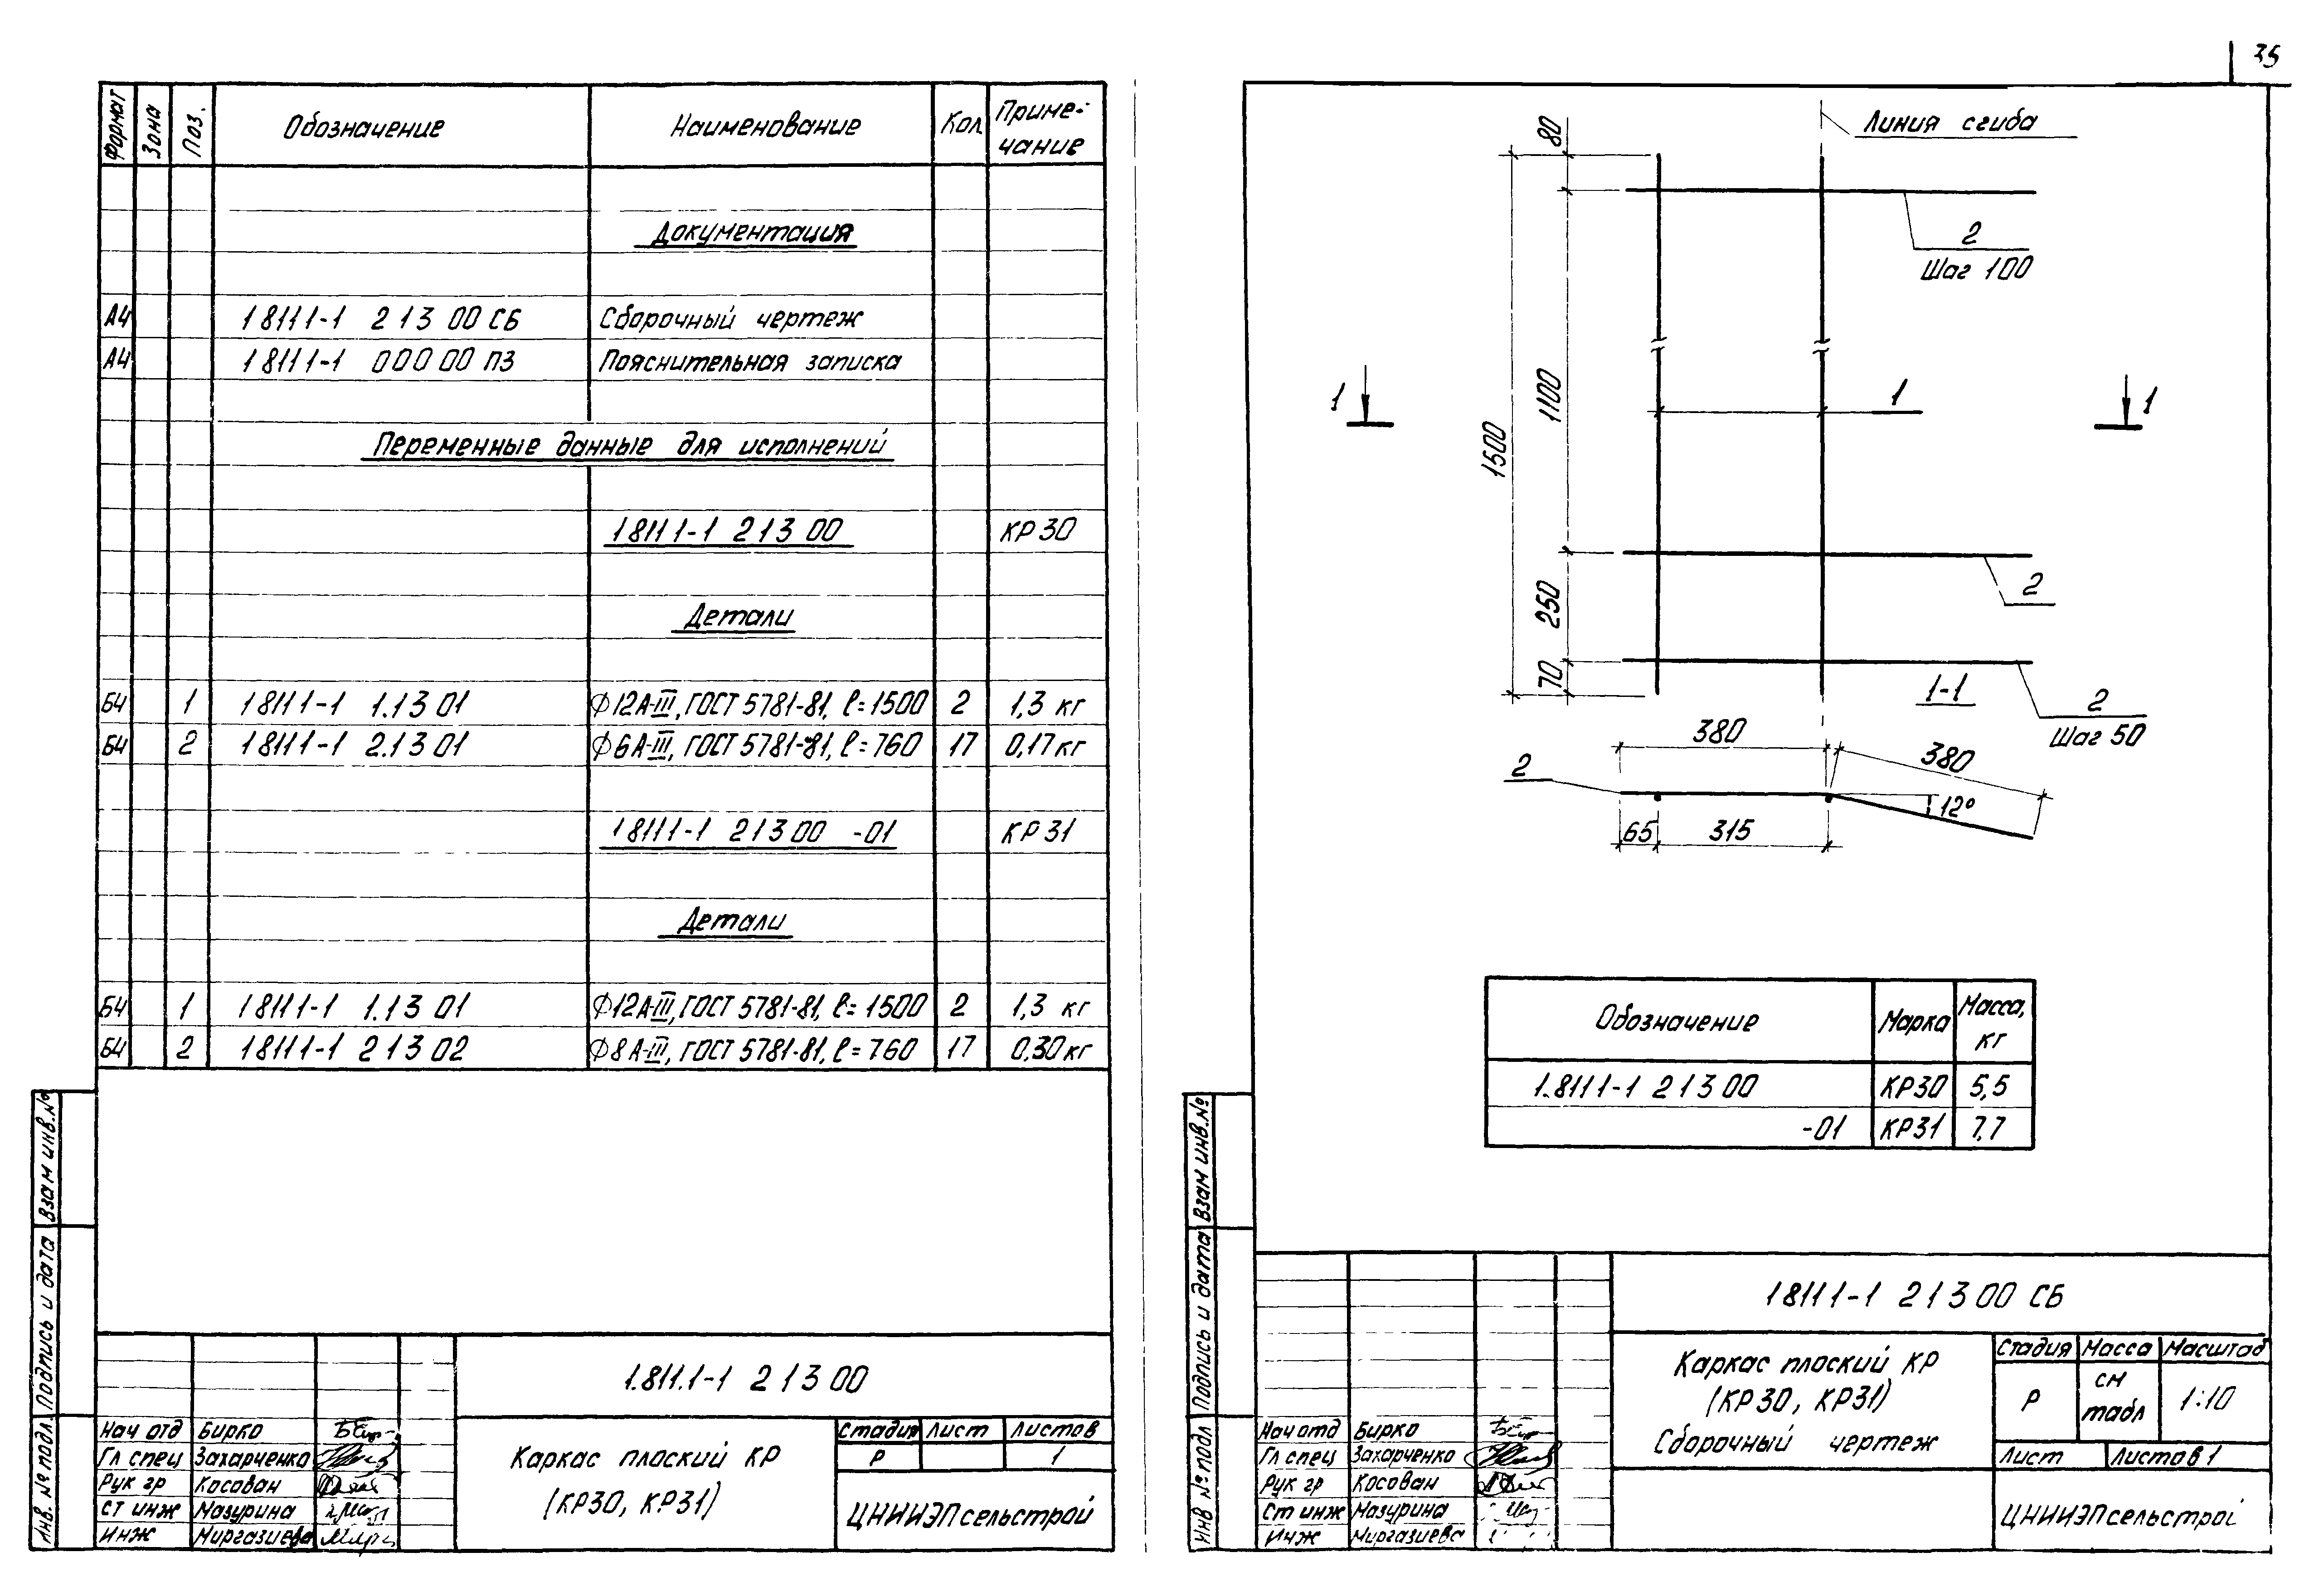 35
Формат
Зона
Поз.
Обозначение
Наименование
Кол
Приме-
чание
Документация
А4 18111-1 213 00 СБ Сборочный чертеж
А4 18111-1 000 00 ПЗ Пояснительная записка
Переменные данные для исполнений
18111-1 213 00 КР30
Детали
Б4 1 18111-1 1.13 01 Ф12А-III, ГОСТ 5781-81, ℓ=1500 2 1,3 кг
Б4 2 18111-1 2.13 01 Ф6А-III, ГОСТ 5781-81, ℓ=760 17 0,17кг
18111-1 21300 -01 КР31
Детали
Б4 1 18111-1 1.13 01 Ф12А-III, ГОСТ 5781-81, ℓ=1500 2 1,3 кг
Б4 2 18111-1 213 02 Ф8А-III, ГОСТ 5781-81, ℓ=760 17 0.30кг
Взам инв.№
Подпись и дата
Инв. № подл
1.811.1-1 213 00
Нач отд Бирко
Гл спец Захарченко
Рук гр Косован
Ст инж Мазурина
Инж Миргазиева
Каркас плоский КР
(КР30, КР31)
Стадия Лист Листов
Р 1
ЦНИИЭПсельстрой
Линия сгиба
80
2
Шаг 100
1100
1500
1
1
1
250
2
70
1-1
2
Шаг 50
380
380
2
12°
65
315
Обозначение Марка Масса,
кг
1.8111-1 213 00 КР30 5,5
-01 КР31 7,7
Взам инв.№
Подпись и дата
Инв № подл
18111-1 213 00 СБ
Каркас плоский КР
(КР30, КР31)
Сборочный чертеж
Стадия Масса Масштаб
Р см
табл 1:10
Лист Листов 1
Нач отд Бирко
Гл спец Захарченко
Рук гр Косован
Ст инж Мазурина
Инж Миргазиева
ЦНИИЭПсельстрой